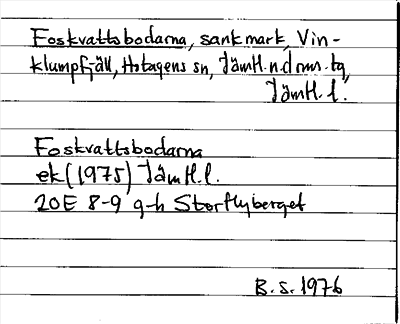 Foskvattsbodarna, sankmark, Vin-
klumpfjäll, Hotagens sn, Jämtl. n. doms. tg,
Jämtl. l.
Foskvattsbodarna
ek (1975) Jämtl. l.
20E 8-9 g-h Storflyberget
B. S. 1976